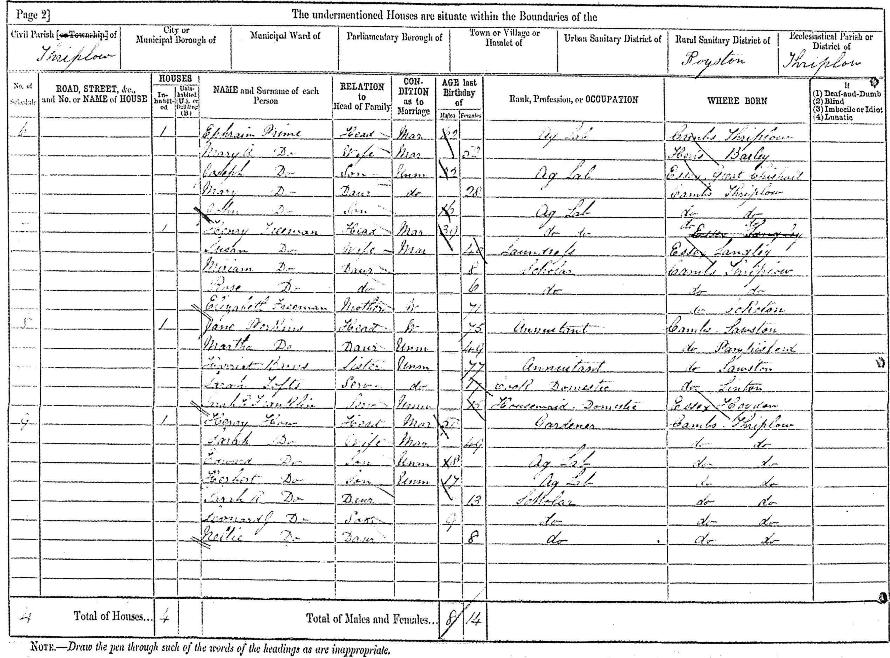 Page 2] The undermentioned Houses are situate within the Boundaries of the
Civil Parish [or Township] of City or Municipal Borough of Municipal Ward of Parliamentary Borough of Town or Village or Hamlet of Urban Sanitary District of Rural Sanitary District of Ecclesiastical Parish or District of
Thriplow Royston Thriplow
No. of Schedule ROAD, STREET, &c., and No. or NAME of HOUSE HOUSES Inhabited Uninhabited (U.), or Building (B.) NAME and Surname of each Person RELATION to Head of Family CONDITION as to Marriage AGE last Birthday of Males Females Rank, Profession, or OCCUPATION WHERE BORN If (1) Deaf-and-Dumb (2) Blind (3) Imbecile or Idiot (4) Lunatic
6 1 Ephraim Prime Head Mar Ag Lab Cambs Thriplow
Mary A Do Wife Mar Herts Barley
Joseph Do Son Unm Ag Lab Essex Great Chishall
Mary Do Daur do 28 Cambs Thriplow
Do Son Ag Lab do do
1 Henry Freeman Head Mar do do do Essex Langley
Susan Do Wife Mar Laundress Essex Langley
Miriam Do Daur 8 Scholar Cambs Thriplow
Rose Do do 6 do do do
Elizabeth Freeman Mother W 71 do
8 1 Jane Perkins Head W 75 Annuitant Cambs Sawston
Martha Do Daur Unm 49 do Pampisford
Sister Unm 77 Annuitant do Sawston
Sarah Tofts Serv do Cook Domestic do Linton
Sarah Franklin Serv Unm Housemaid Domestic Essex Heydon
9 1 Henry How Head Mar Gardener Cambs Thriplow
Sarah Do Wife Mar 49 do do
Edward Do Son Unm 18 Ag Lab do do
Herbert Do Son Unm 17 Ag Lab do do
Sarah A Do Daur 13 Scholar do do
Leonard J Do Son 9 do do do
Nellie Do Daur 8 do do do
4 Total of Houses... 4 Total of Males and Females... 8 14
NOTE.—Draw the pen through such of the words of the headings as are inappropriate.